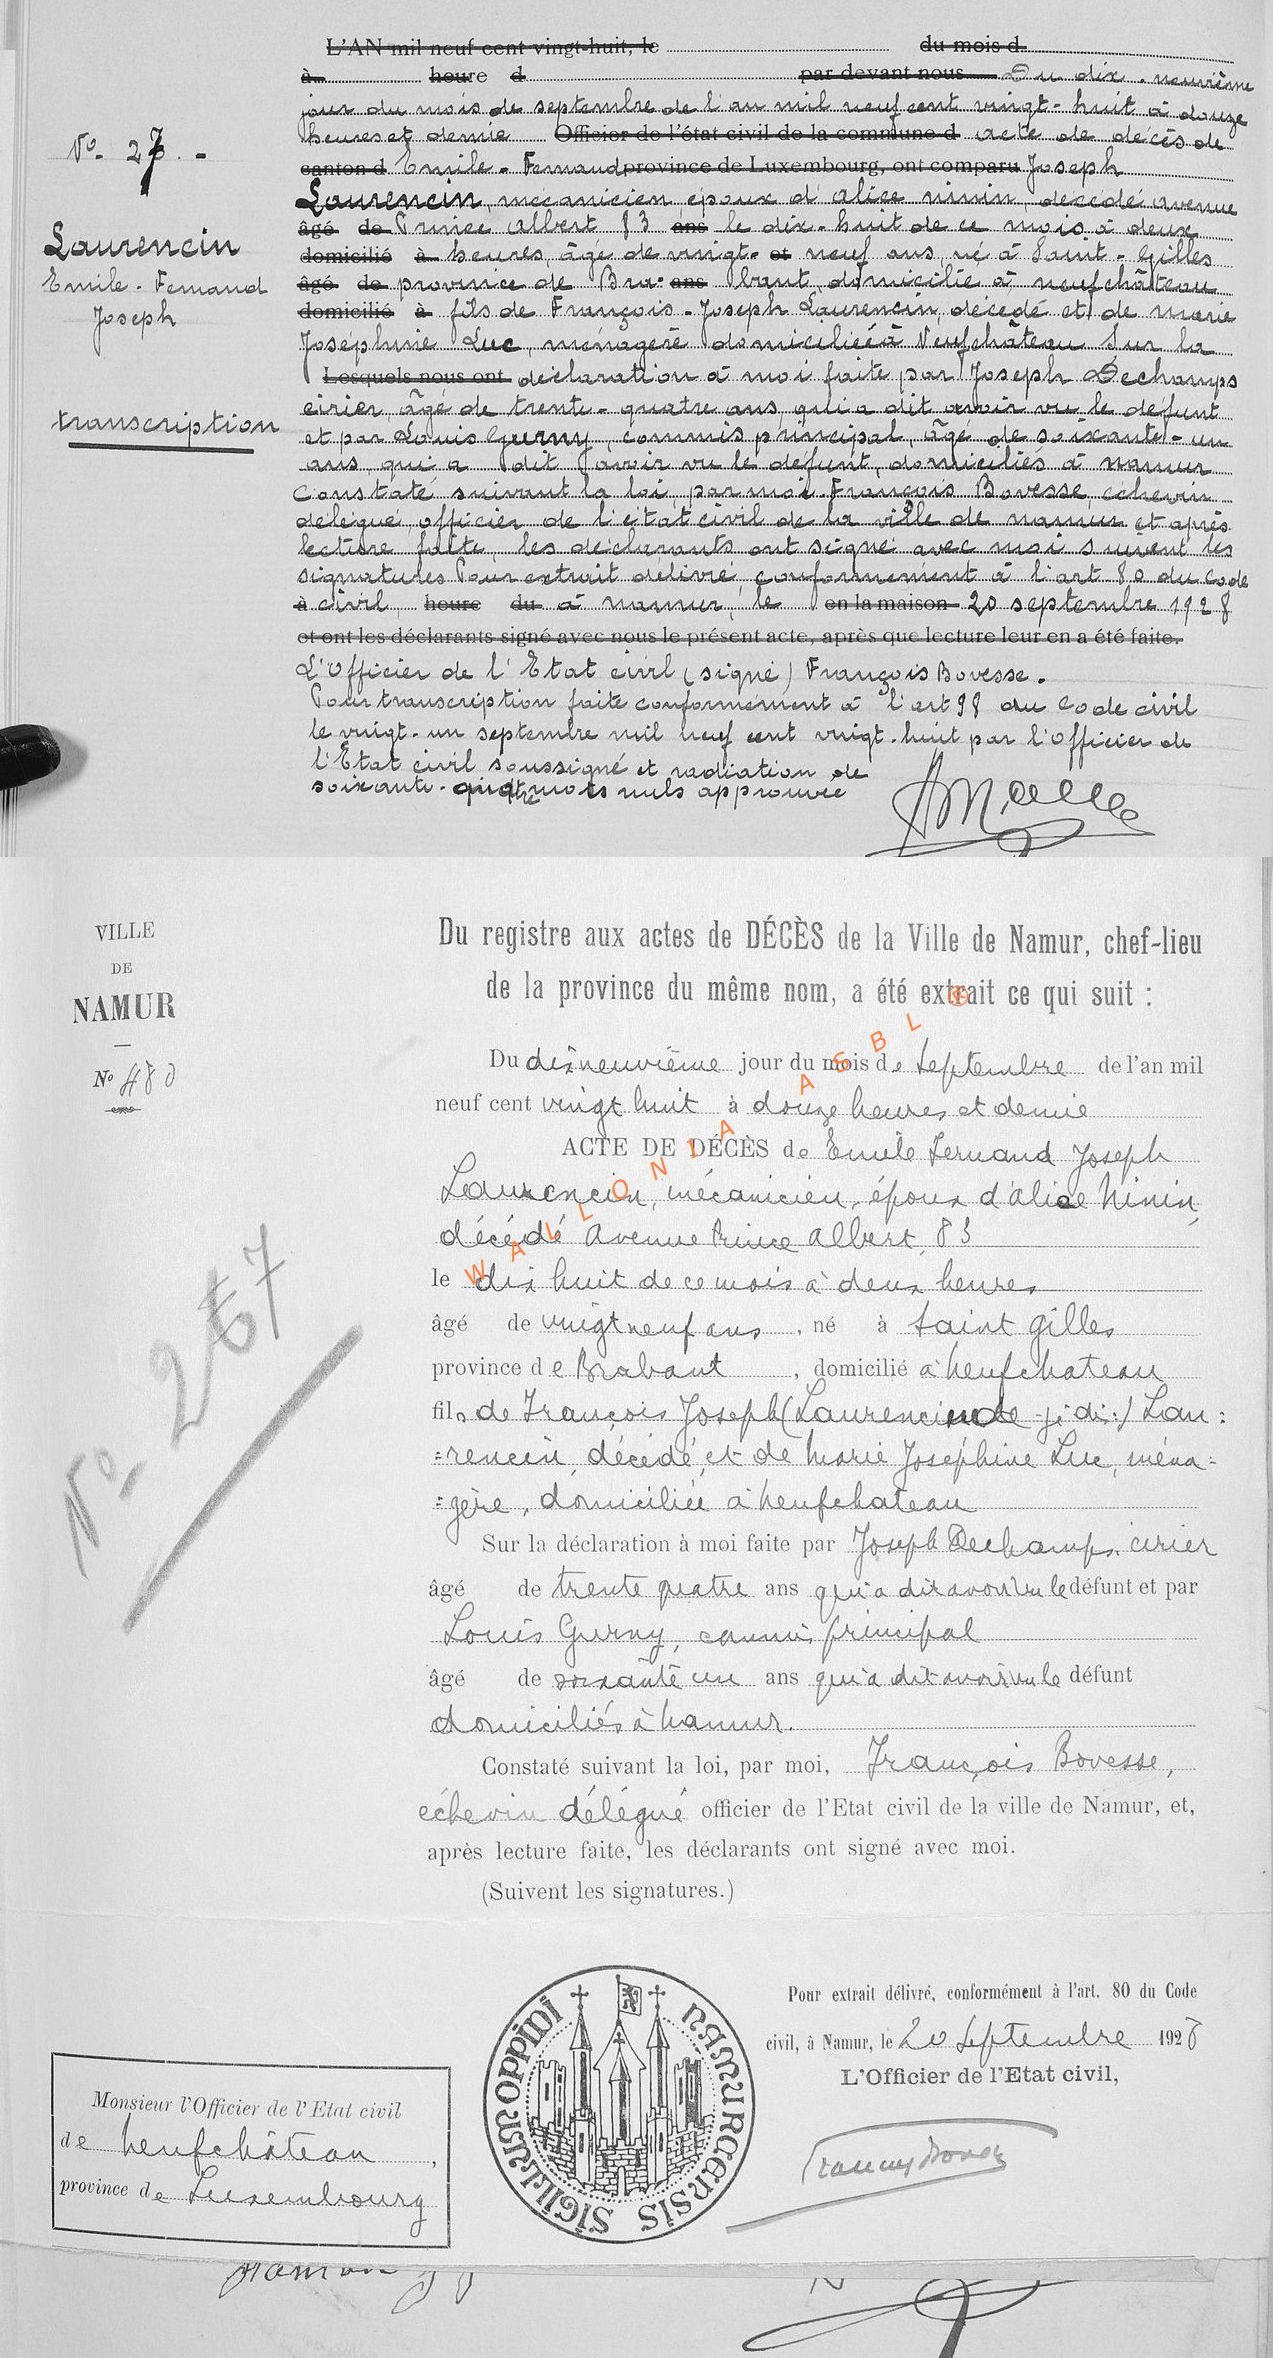 L'AN mil neuf cent vingt-huit, le du mois d
à heure d par devant nous Du dix-neuvième
jour du mois de septembre de l'an mil neuf cent vingt-huit à douze
heures et demie Officier de l'état civil de la commune d acte de décès de
canton d Emile-Fernand province de Luxembourg, ont comparu Joseph
Laurencin, mécanicien, époux d'alice ninin, décédé avenue
âgé de Prince Albert 83 ans le dix-huit de ce mois à deux
domicilié à heures, âgé de vingt-et neuf ans, né à Saint-Gilles
âgé de province de Bra-ans bant, domicilié à neufchâteau
domicilié à fils de François-Joseph Laurencin, décédé et de marie
Josephine Luc, ménagère domiciliée à Neufchâteau Sur la
Lesquels nous ont déclaration à moi faite par Joseph Dechamps
cirier, âgé de trente-quatre ans, qui a dit avoir vu le défunt
et par Louis Gurny, commis principal, âgé de soixante-un
ans, qui a dit avoir vu le défunt, domiciliés à namur
Constaté suivant la loi, par moi François Bovesse, échevin
délégué, officier de l'état civil de la ville de namur et après
lecture faite, les déclarants ont signé avec moi suivent les
signatures Pour extrait délivré, conformément à l'art. 80 du Code
à civil, heure du à namur, le en la maison 20 septembre 1928
et ont les déclarants signé avec nous le présent acte, après que lecture leur en a été faite.
L'Officier de l'Etat civil (signé) François Bovesse.
Pour transcription faite conformément à l'art 98 du Code civil
le vingt-un septembre mil neuf cent vingt-huit par l'officier de
l'Etat civil soussigné et radiation de
soixante-quatre mots nuls approuvée
No 27.-
Laurencin
Emile-Fernand
Joseph
transcription
VILLE
DE
NAMUR
No 480
No 267
Du registre aux actes de DÉCÈS de la Ville de Namur, chef-lieu
de la province du même nom, a été extrait ce qui suit :
Du dix neuvième jour du mois de Septembre de l'an mil
neuf cent vingt huit à douze heures et demie
ACTE DE DÉCÈS de Emile Fernand Joseph
Laurencin, mécanicien, époux d'alice Ninin,
décédé Avenue Prince Albert, 83
le dix huit de ce mois à deux heures
âgé de vingt neuf ans, né à Saint Gilles
province de Brabant, domicilié à neufchateau
fils de François Joseph (Laurencin de j. di:) Lau:
:rencin, décédé, et de Marie Joséphine Luc, ména:
:gère, domiciliée à neufchateau
Sur la déclaration à moi faite par Joseph Dechamps, cirier
âgé de trente quatre ans qui a dit avoir vu le défunt et par
Louis Gurny, commis principal
âgé de soixante un ans qui a dit avoir vu le défunt
domiciliés à namur.
Constaté suivant la loi, par moi, François Bovesse,
échevin délégué officier de l'Etat civil de la ville de Namur, et,
après lecture faite, les déclarants ont signé avec moi.
(Suivent les signatures.)
WALLONIA ASBL ®
SIGILLUM OPPIDI NAMURCENSIS
Pour extrait délivré, conformément à l'art. 80 du Code
civil, à Namur, le 20 Septembre 1928
L'Officier de l'Etat civil,
Monsieur l'Officier de l'Etat civil
de neufchâteau,
province de Luxembourg